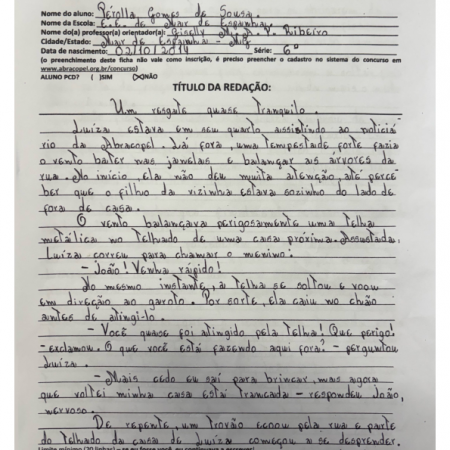 Nome do aluno: Pérolla Gomes de Sousa
Nome da Escola: E.E. de Mar de Espanha
Nome do(a) professor(a) orientador(a): Giselly M. A. P. Ribeiro
Cidade/Estado: Mar de Espanha - MG
Data de nascimento: 02/10/2014 Série: 6º
(o preenchimento desta ficha não vale como inscrição, é preciso preencher o cadastro no sistema do concurso em
www.abracopel.org.br/concurso)
ALUNO PCD? ( )SIM (X)NÃO
TÍTULO DA REDAÇÃO:
Um resgate quase tranquilo.
Luiza estava em seu quarto assistindo ao noticiá
rio da Abracopel. Lá fora, uma tempestade forte fazia
o vento bater nas janelas e balançar as árvores da
rua. No início, ela não deu muita atenção, até perce
ber que o filho da vizinha estava sozinho do lado de
fora de casa.
O vento balançava perigosamente uma telha
metálica no telhado de uma casa próxima. Assustada,
Luiza correu para chamar o menino:
- João! Venha rápido!
No mesmo instante, a telha se soltou e voou
em direção ao garoto. Por sorte, ela caiu no chão
antes de atingi-lo.
- Você quase foi atingido pela telha! Que perigo!
- exclamou. O que você está fazendo aqui fora? - perguntou
Luiza.
- Mais cedo eu saí para brincar, mas agora
que voltei minha casa está trancada - respondeu João,
nervoso.
De repente, um trovão ecoou pela rua e parte
do telhado da casa de Luiza começou a se desprender.
Limite mínimo (20 linhas) – se eu fosse você, continuava a escrever!